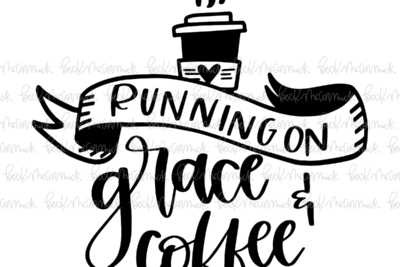 RUNNING ON
grace &
coffee